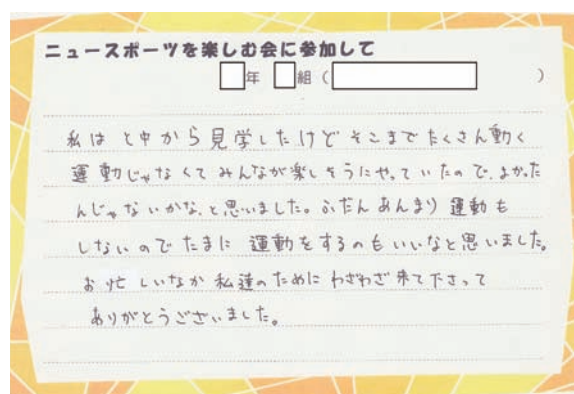 ニュースポーツを楽しむ会に参加して
年 組( )
私はと中から見学したけどそこまでたくさん動く
運動じゃなくてみんなが楽しそうにやっていたので、よかった
んじゃないかな、と思いました。ふだんあんまり運動も
しないのでたまに運動をするのもいいなと思いました。
お忙しいなか私達のためにわざわざ来て下さって
ありがとうございました。